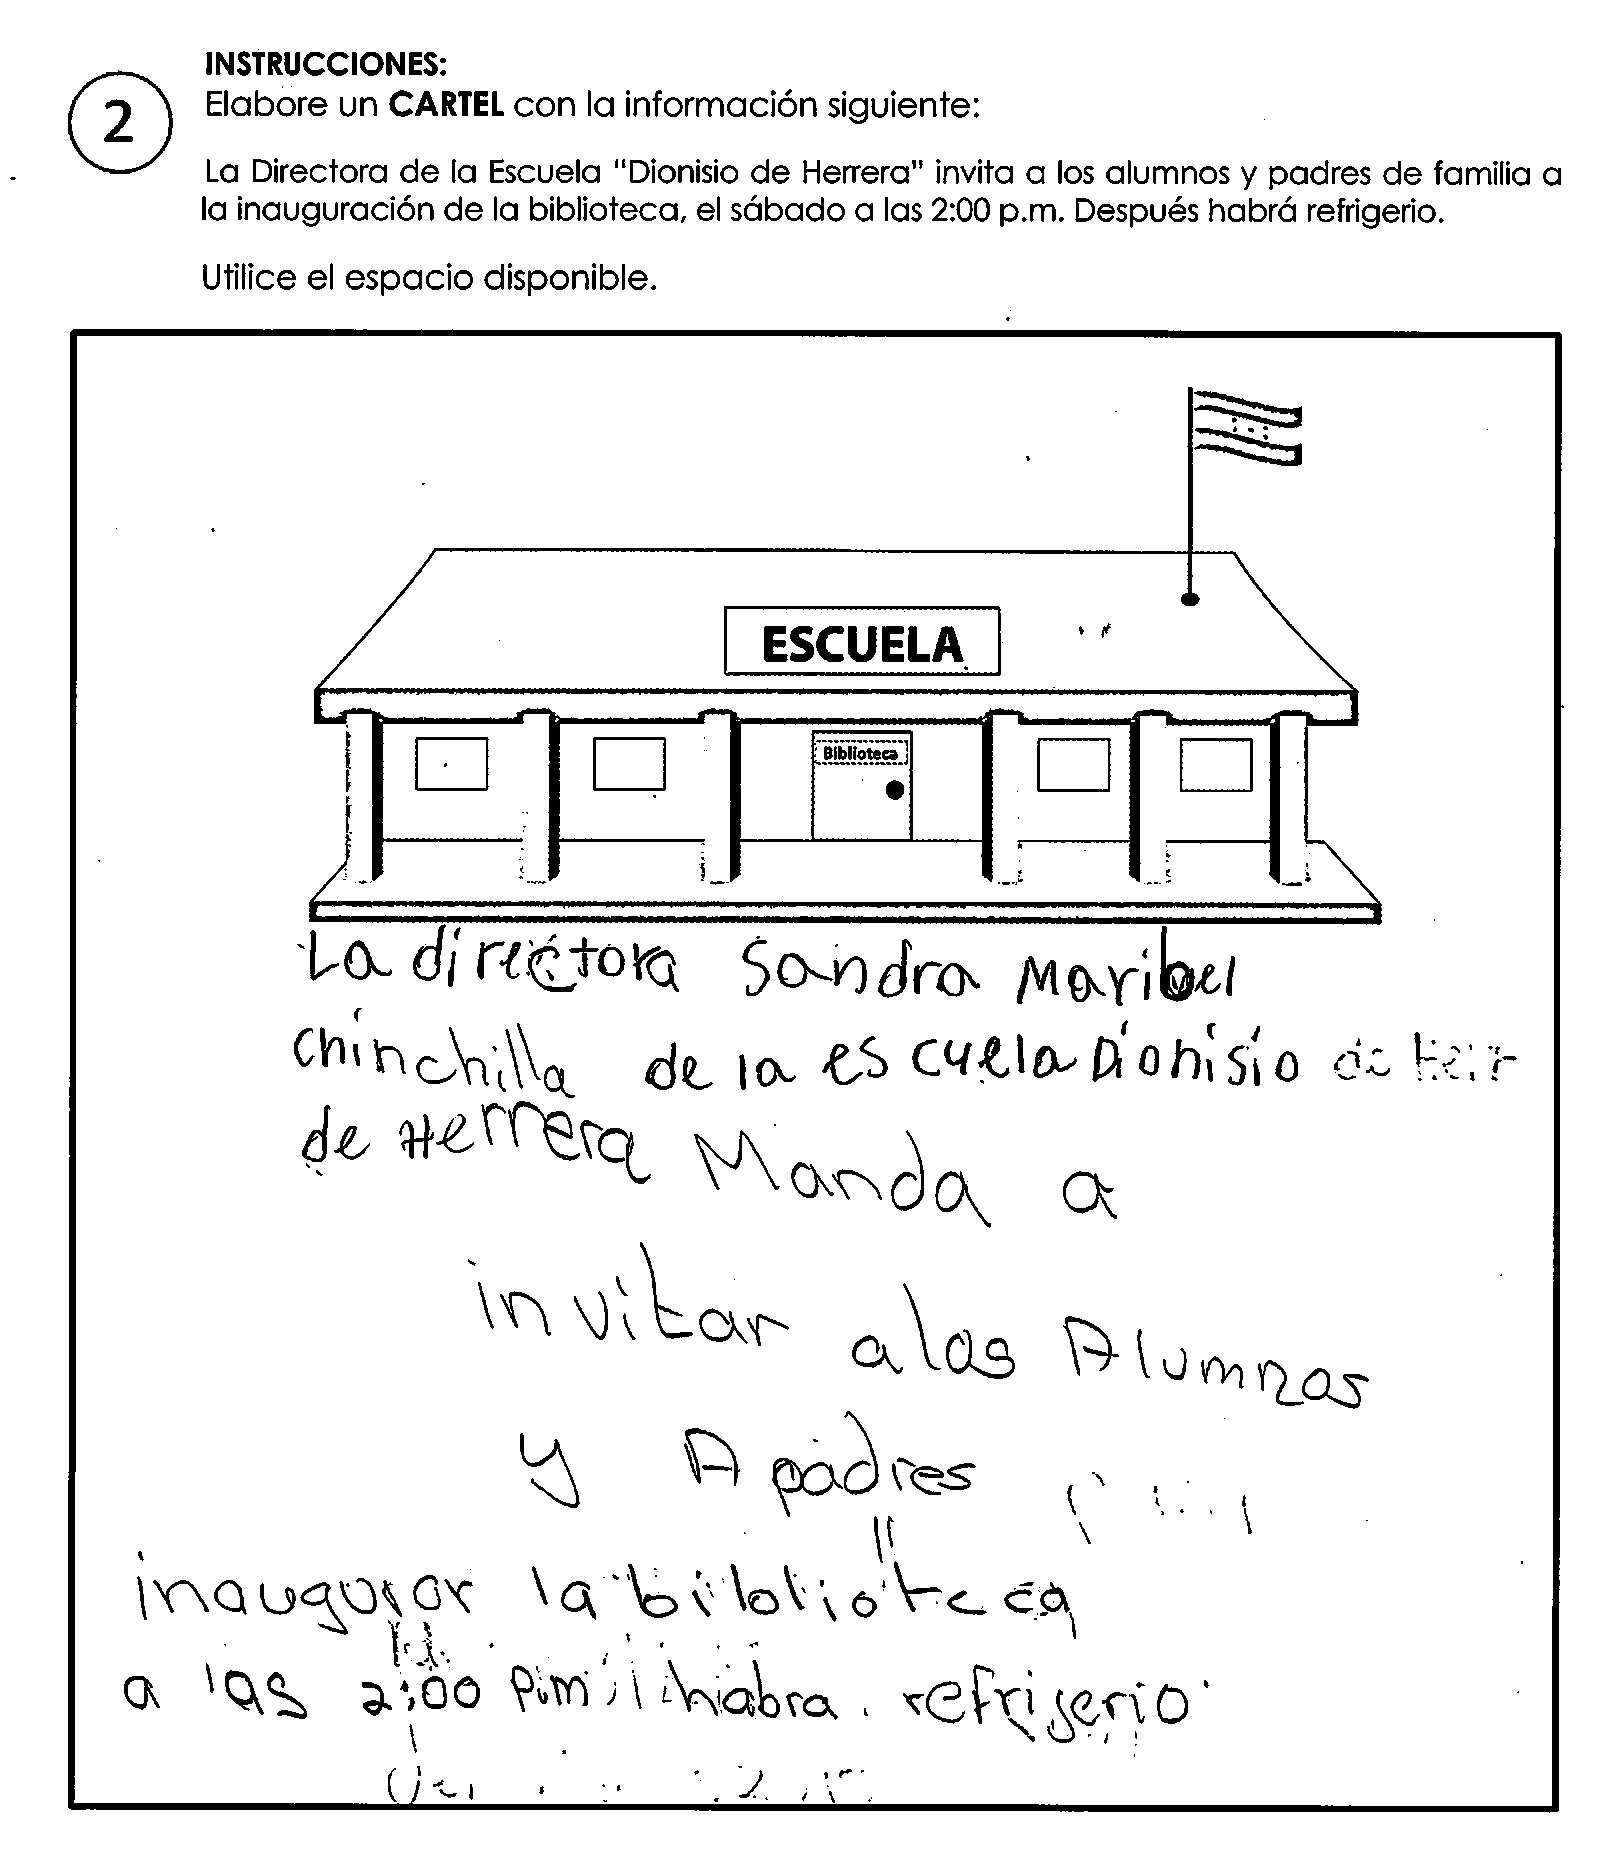 INSTRUCCIONES:
2
Elabore un CARTEL con la información siguiente:
La Directora de la Escuela "Dionisio de Herrera" invita a los alumnos y padres de familia a
la inauguración de la biblioteca, el sábado a las 2:00 p.m. Después habrá refrigerio.
Utilice el espacio disponible.
ESCUELA
Biblioteca
La directora Sandra Maribel
chinchilla de la escuela Dionisio
de Herrera Manda a
invitar a los Alumnos
y A padres
inaugurar la biblioteca
a las 2:00 p.m habra refrigerio